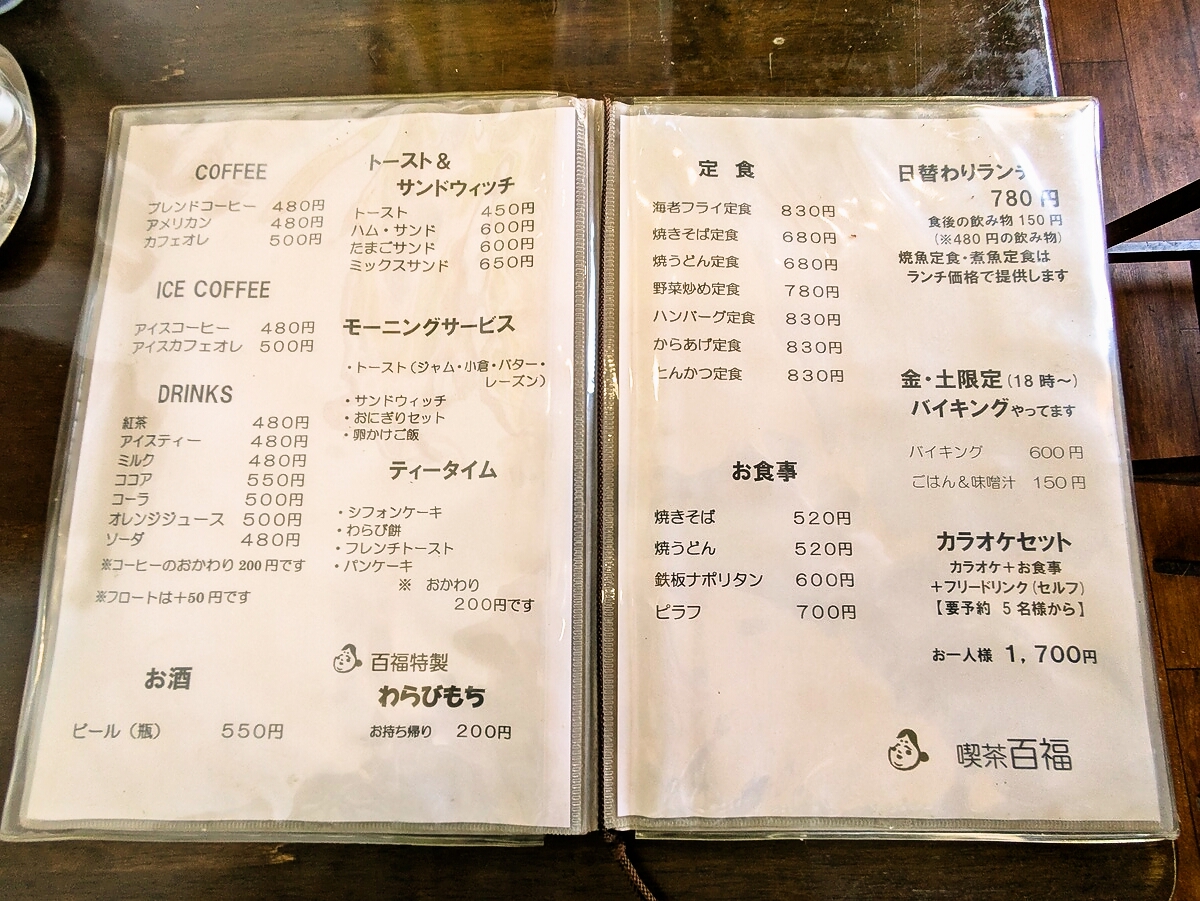 COFFEE
ブレンドコーヒー 480円
アメリカン 480円
カフェオレ 500円
ICE COFFEE
アイスコーヒー 480円
アイスカフェオレ 500円
DRINKS
紅茶 480円
アイスティー 480円
ミルク 480円
ココア 550円
コーラ 500円
オレンジジュース 500円
ソーダ 480円
※コーヒーのおかわり200円です
※フロートは+50円です
お酒
ビール(瓶) 550円
トースト&
サンドウィッチ
トースト 450円
ハム・サンド 600円
たまごサンド 600円
ミックスサンド 650円
モーニングサービス
・トースト(ジャム・小倉・バター・
レーズン)
・サンドウィッチ
・おにぎりセット
・卵かけご飯
ティータイム
・シフォンケーキ
・わらび餅
・フレンチトースト
・パンケーキ
※ おかわり
200円です
百福特製
わらびもち
お持ち帰り 200円
定食
海老フライ定食 830円
焼きそば定食 680円
焼うどん定食 680円
野菜炒め定食 780円
ハンバーグ定食 830円
からあげ定食 830円
とんかつ定食 830円
お食事
焼きそば 520円
焼うどん 520円
鉄板ナポリタン 600円
ピラフ 700円
日替わりランチ
780円
食後の飲み物150円
(※480円の飲み物)
焼魚定食・煮魚定食は
ランチ価格で提供します
金・土限定(18時~)
バイキングやってます
バイキング 600円
ごはん&味噌汁 150円
カラオケセット
カラオケ+お食事
+フリードリンク(セルフ)
【要予約 5名様から】
お一人様 1,700円
喫茶百福